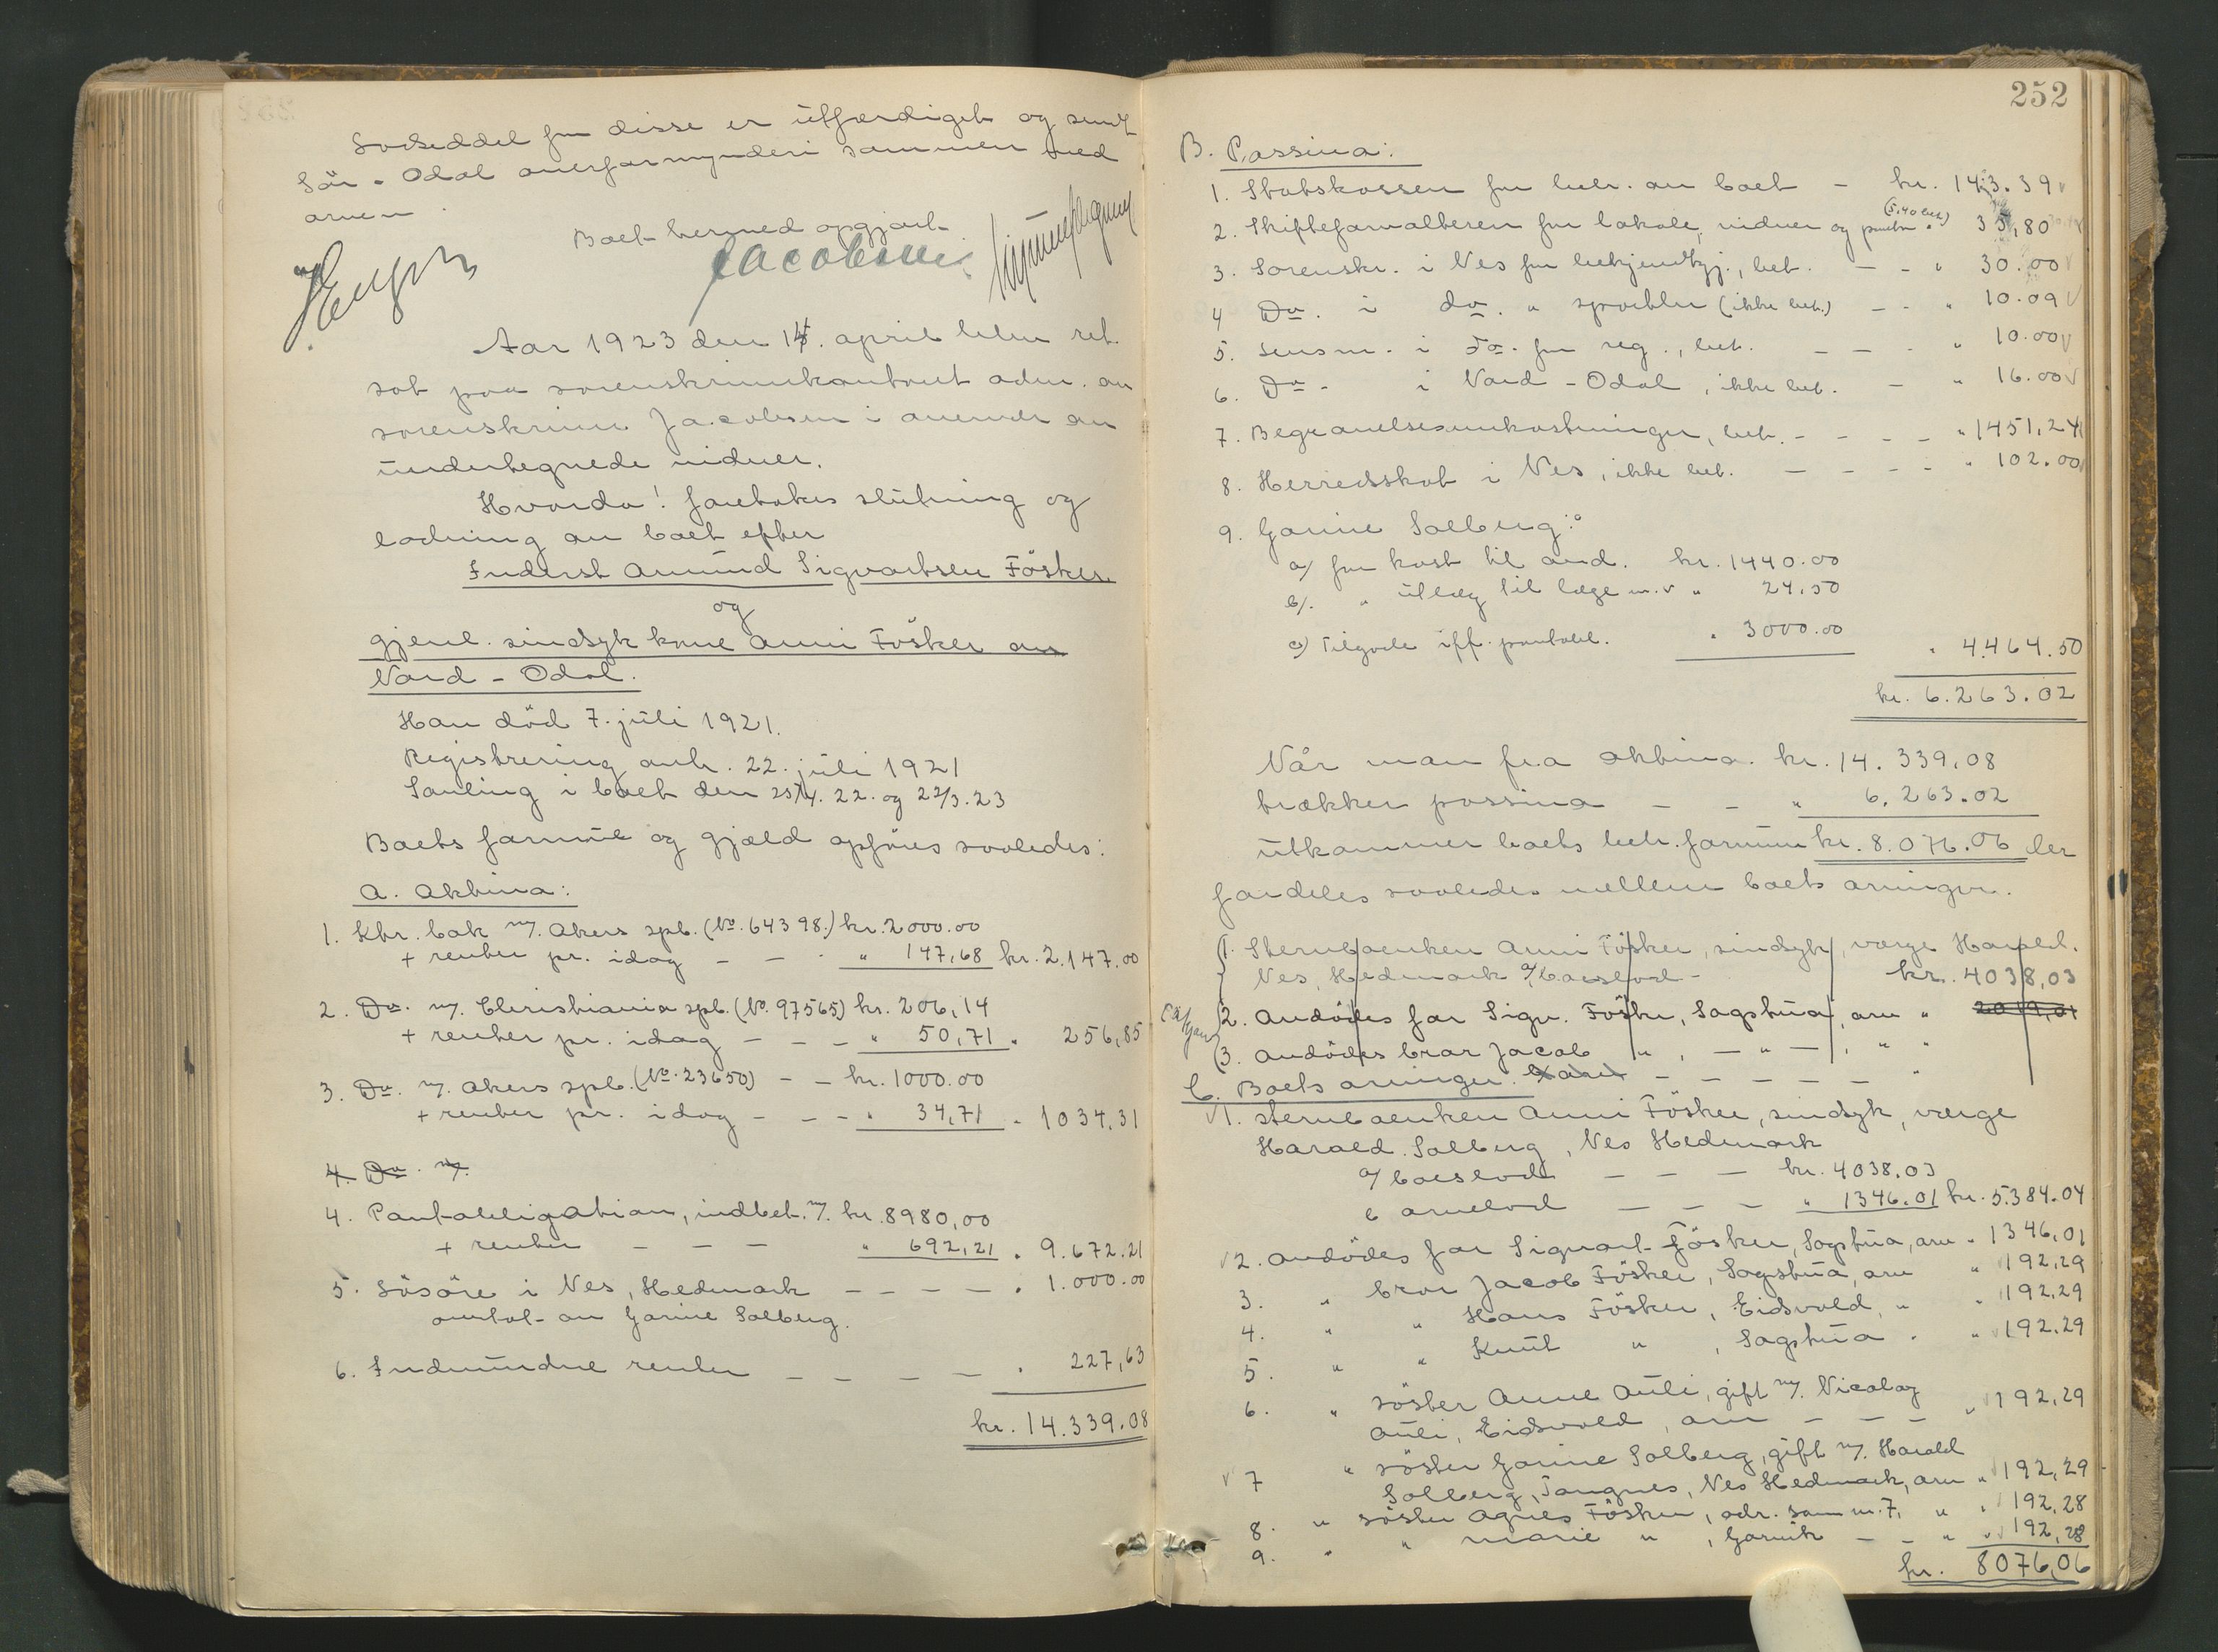 Lodseddel for disse er utfærdiget og sendt
Sør-Odal overformynderi sammen med
arven.
Boet hermed opgjort.
Jacobsen
Aar 1923 den 14. april blev ret
sat paa sorenskriverkontoret adm. av
sorenskriver Jacobsen i overvær av
undertegnede vidner.
Hvorda! foretokes slutning og
lodning av boet efter
Inderst Amund Sigvartsen Föskes
og
gjenl. sindsyk kone Anni Fösker av
Nord-Odal.
Han död 7. juli 1921.
Registrering avh. 22. juli 1921
Samling i boet den 25/4. 22. og 22/3. 23
Boets formue og gjæld opföres saaledes:
A. Aktiva:
1. Kbr. bok m/. Akers spb. (No. 64398.) kr. 2000.00
+ renter pr. idag - - - " 147,68 kr. 2.147.00
2. Do. m/. Christiania spb. (No. 97565) kr. 206,14
+ renter pr. idag - - - " 50,71 " 256,85
3. Do. m/. Akers spb. (No. 23650) - - kr. 1000.00
+ renter pr. idag - - - " 34,71 " 1034.31
4. Do. m/.
4. Pantobligation, indbet. m/. kr. 8980,00
+ renter - - - " 692,21 " 9.672.21
5. Lösöre i Ves, Hedmark - - - - " 1.000.00
overtat av Garine Solberg.
6. Indvundne renter - - - - " 227,63
kr. 14.339.08
252
B. Passiva:
1. Statskassen for beh. av boet - kr. 143.39
2. Skifteforvalteren for lokale, vidner og porto (5,40 bet.) " 35,80
3. Sorenskr. i Nes for bekjendtgj., bet. - - " 30.00
4 Do. i do. " proklm (ikke bet.) - - " 10.09
5. Lensm. i Do. for reg., bet. - - - " 10.00
6. Do - i Nord-Odal, ikke bet. - " 16.00
7. Begravelsesomkostninger, bet. - - - - " 1451,24
8. Herredsskat i Nes, ikke bet. - - - - " 102.00
9. Garine Solberg:
a/ for kost til avd. kr. 1440.00
b/. " utlæg til læge m.v " 24.50
c) Tilgode iflg. pantobl. " 3000.00 " 4.464.50
kr. 6.263.02
Når man fra aktiva kr. 14.339,08
trækker passiva - - " 6.263.02
utkommer boets beh. formue kr. 8.076.06 der
fordeles saaledes mellem boets arvinger.
1. Stervboenken Anni Fösker, sindsyk, værge Harald.
Nes, Hedmark a/ boeslod - kr. 4038,03
2. Avdödes far Sigv. Fösker, Sagstua, arv " 2019,01
3. Avdödes bror Jacob " , - " - , " "
C. Boets arvinger. - - - - - - "
1. Stervboenken Anni Fösker, sindsyk, værge
Harald Solberg, Nes Hedmark
a/ boeslod - - - kr. 4038.03
b arvelod - - - " 1346.01 kr. 5.384.04
2. Avdödes far Sigvart Fösker, Sagstua, arv " 1346,01
3. " bror Jacob Fösker, Sagstua, arv " 192,29
4. " " Hans Fösker, Eidsvold, " " 192,29
5. " " Knut " , Sagstua " " 192,29
6. " söster Anne Auli, gift m/. Nicolay
Auli, Eidsvold, arv - - - " 192,29
7 " söster Garine Solberg, gift m/. Harald
Solberg, Tangnes, Nes Hedmark, arv " 192,29
8. " söster Agnes Fösker, adr. som nr. 7, " " 192,28
9. " " Marie " , Gjøvik - - " " 192,28
kr. 8076,06